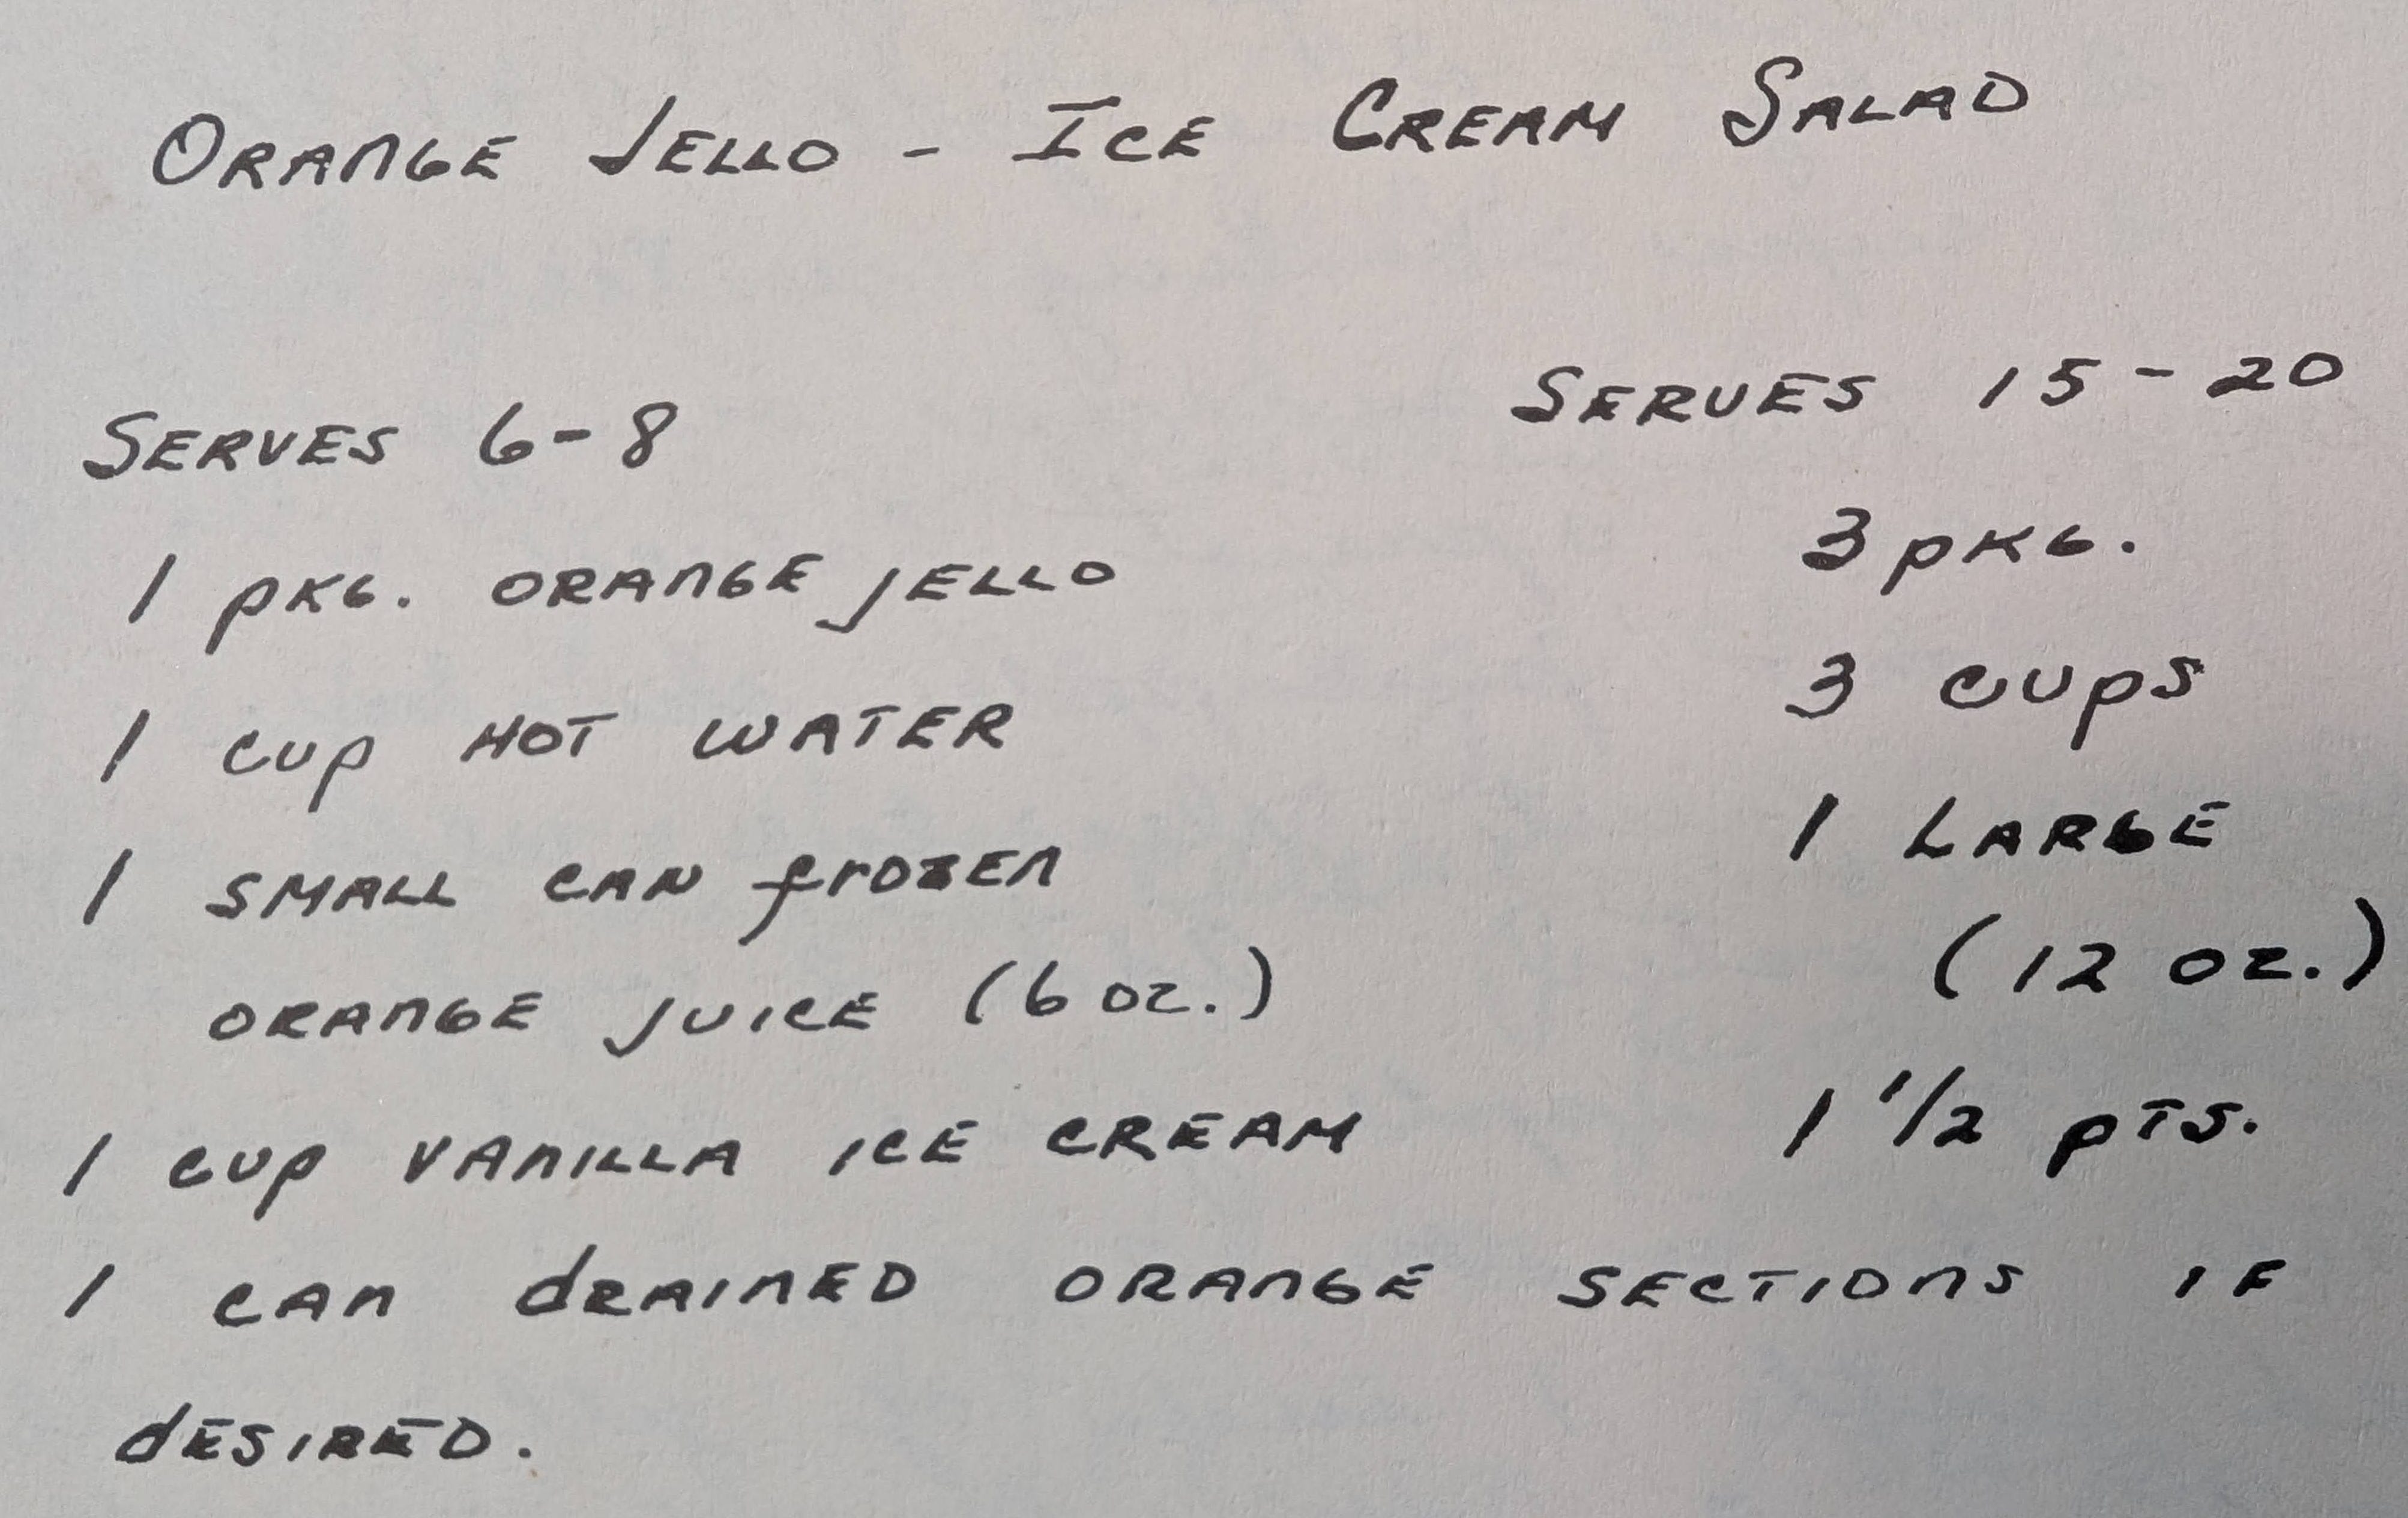 Orange Jello - Ice Cream Salad
Serves 6-8 Serves 15-20
1 pkg. orange jello 3 pkg.
1 cup hot water 3 cups
1 small can frozen 1 large
orange juice (6 oz.) (12 oz.)
1 cup vanilla ice cream 1 1/2 pts.
1 can drained orange sections if
desired.